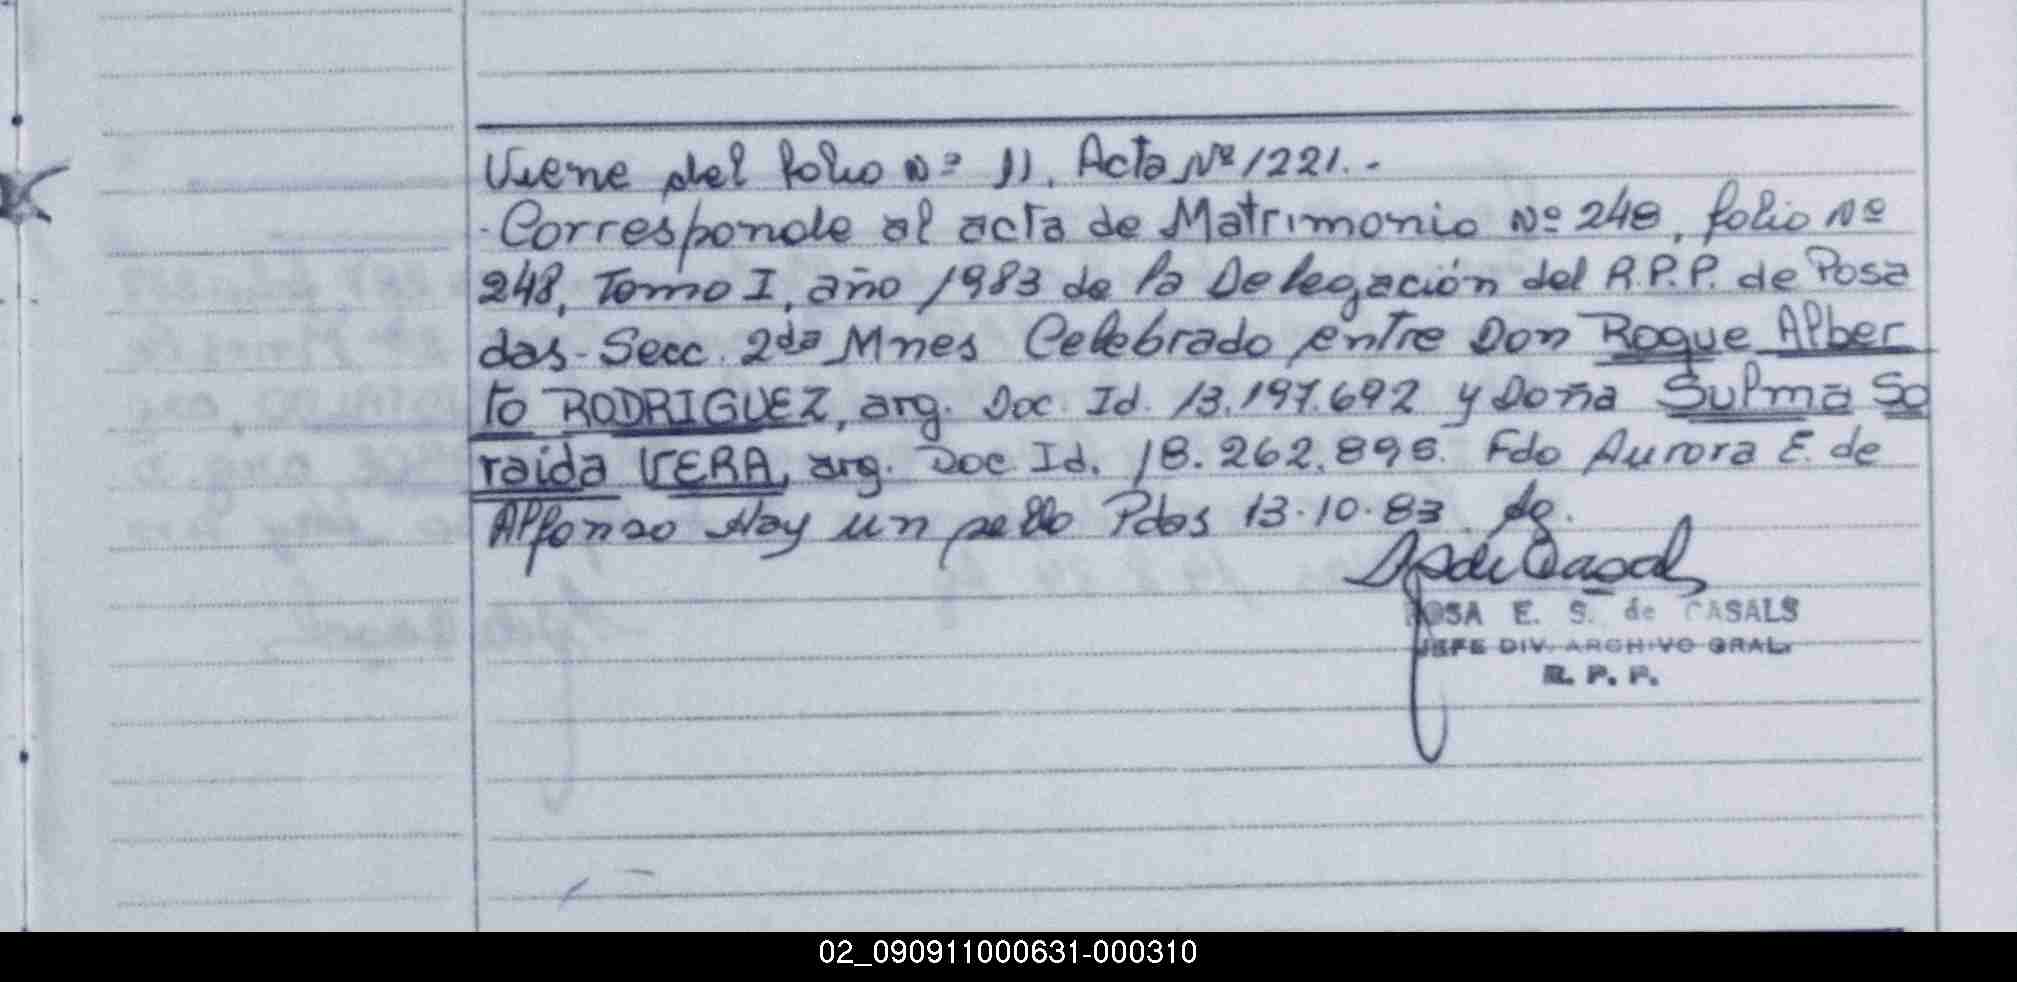 Viene del folio Nº 11. Acta Nº 1221.-
Corresponde al acta de Matrimonio Nº 248, folio Nº
248, Tomo I, año 1983 de la Delegación del R.P.P. de Posa
das- Secc. 2da Mnes Celebrado entre Don Roque Alber
to RODRIGUEZ, arg. Doc. Id. 13.197.692 y Doña Sulma So
raida VERA, arg. Doc. Id. 18.262.896. Fdo Aurora E. de
Alfonso Hay un sello Pdas 13.10.83
ROSA E. S. de CASALS
JEFE DIV. ARCHIVO GRAL.
R. P. P.
02_090911000631-000310